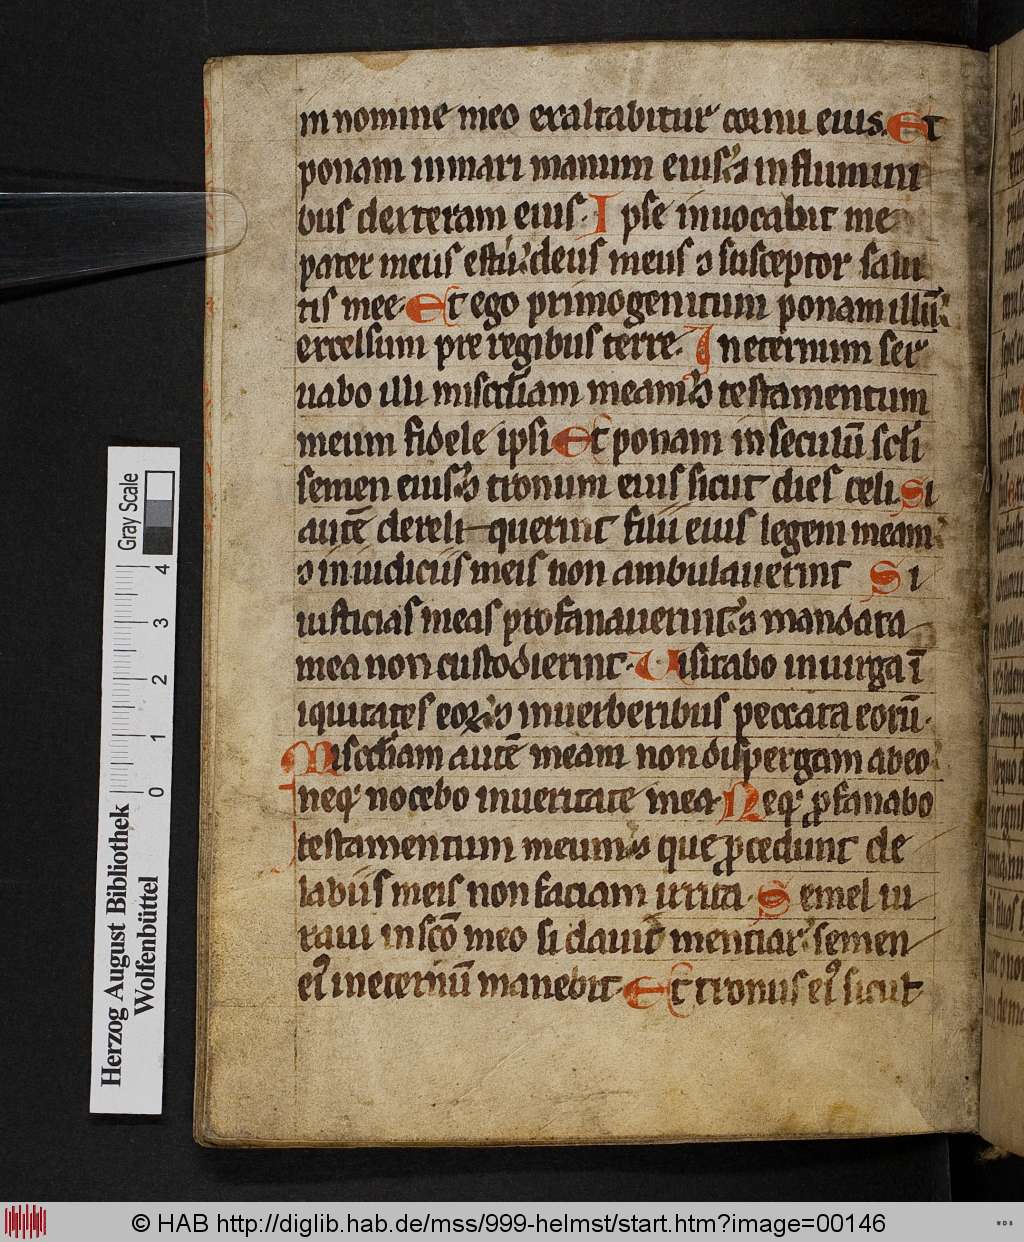 in nomine meo exaltabitur cornu eius. Et
ponam in mari manum eius: ⁊ in flumini
bus dexteram eius. Ipse inuocabit me
pater meus es tu: deus meus ⁊ susceptor salu
tis mee. Et ego primogenitum ponam illū:
excelsum pre regibus terre. In eternum ser
uabo illi miscd̄iam meam: ⁊ testamentum
meum fidele ipsi Et ponam in seculū scl̄i
semen eius: ⁊ tronum eius sicut dies celi. Si
autē dereli querint filii eius legem meam:
⁊ in iudiciis meis non ambulauerint Si
iusticias meas profanauerint: ⁊ mandata
mea non custodierint. Uisitabo in uirga ī
iquitates eoꝝ: ⁊ in uerberibus peccata eorū.
Miscd̄iam autē meam non dispergam ab eo
neqꝫ nocebo in ueritate mea. Neqꝫ ꝓfanabo
testamentum meum: ⁊ que ꝓcedunt de
labiis meis non faciam irrita. Semel iu
raui in scō meo si dauid mentiar: semen
eiꝰ in eternū manebit. Et tronus eiꝰ sicut
Gray Scale
4
3
2
1
0
Herzog August Bibliothek
Wolfenbüttel
© HAB http://diglib.hab.de/mss/999-helmst/start.htm?image=00146